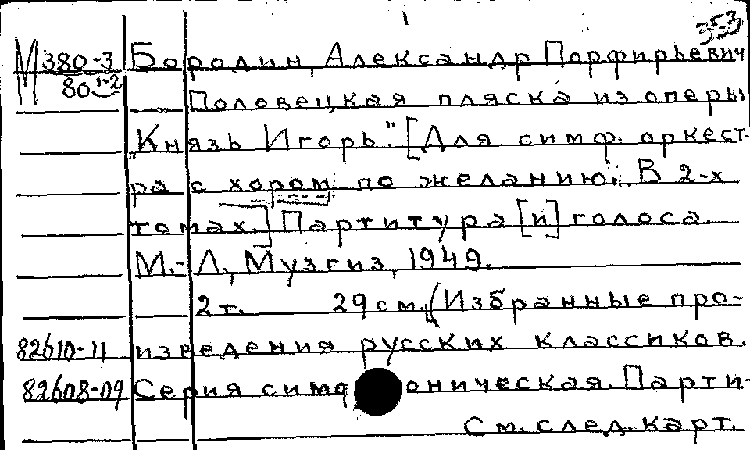 353
М380-3 Бородин, Александр Порфирьевич
80 1-2 Половецкая пляска из оперы
„Князь Игорь". [Для симф. оркест-
ра с хором по желанию. В 2-х
томах.] Партитура [и] голоса.
М.-Л., Музгиз, 1949.
2 т. 29 см. (Избранные про-
82610-11 изведения русских классиков.
82608-09 Серия симфоническая. Парти-
См. след. карт.